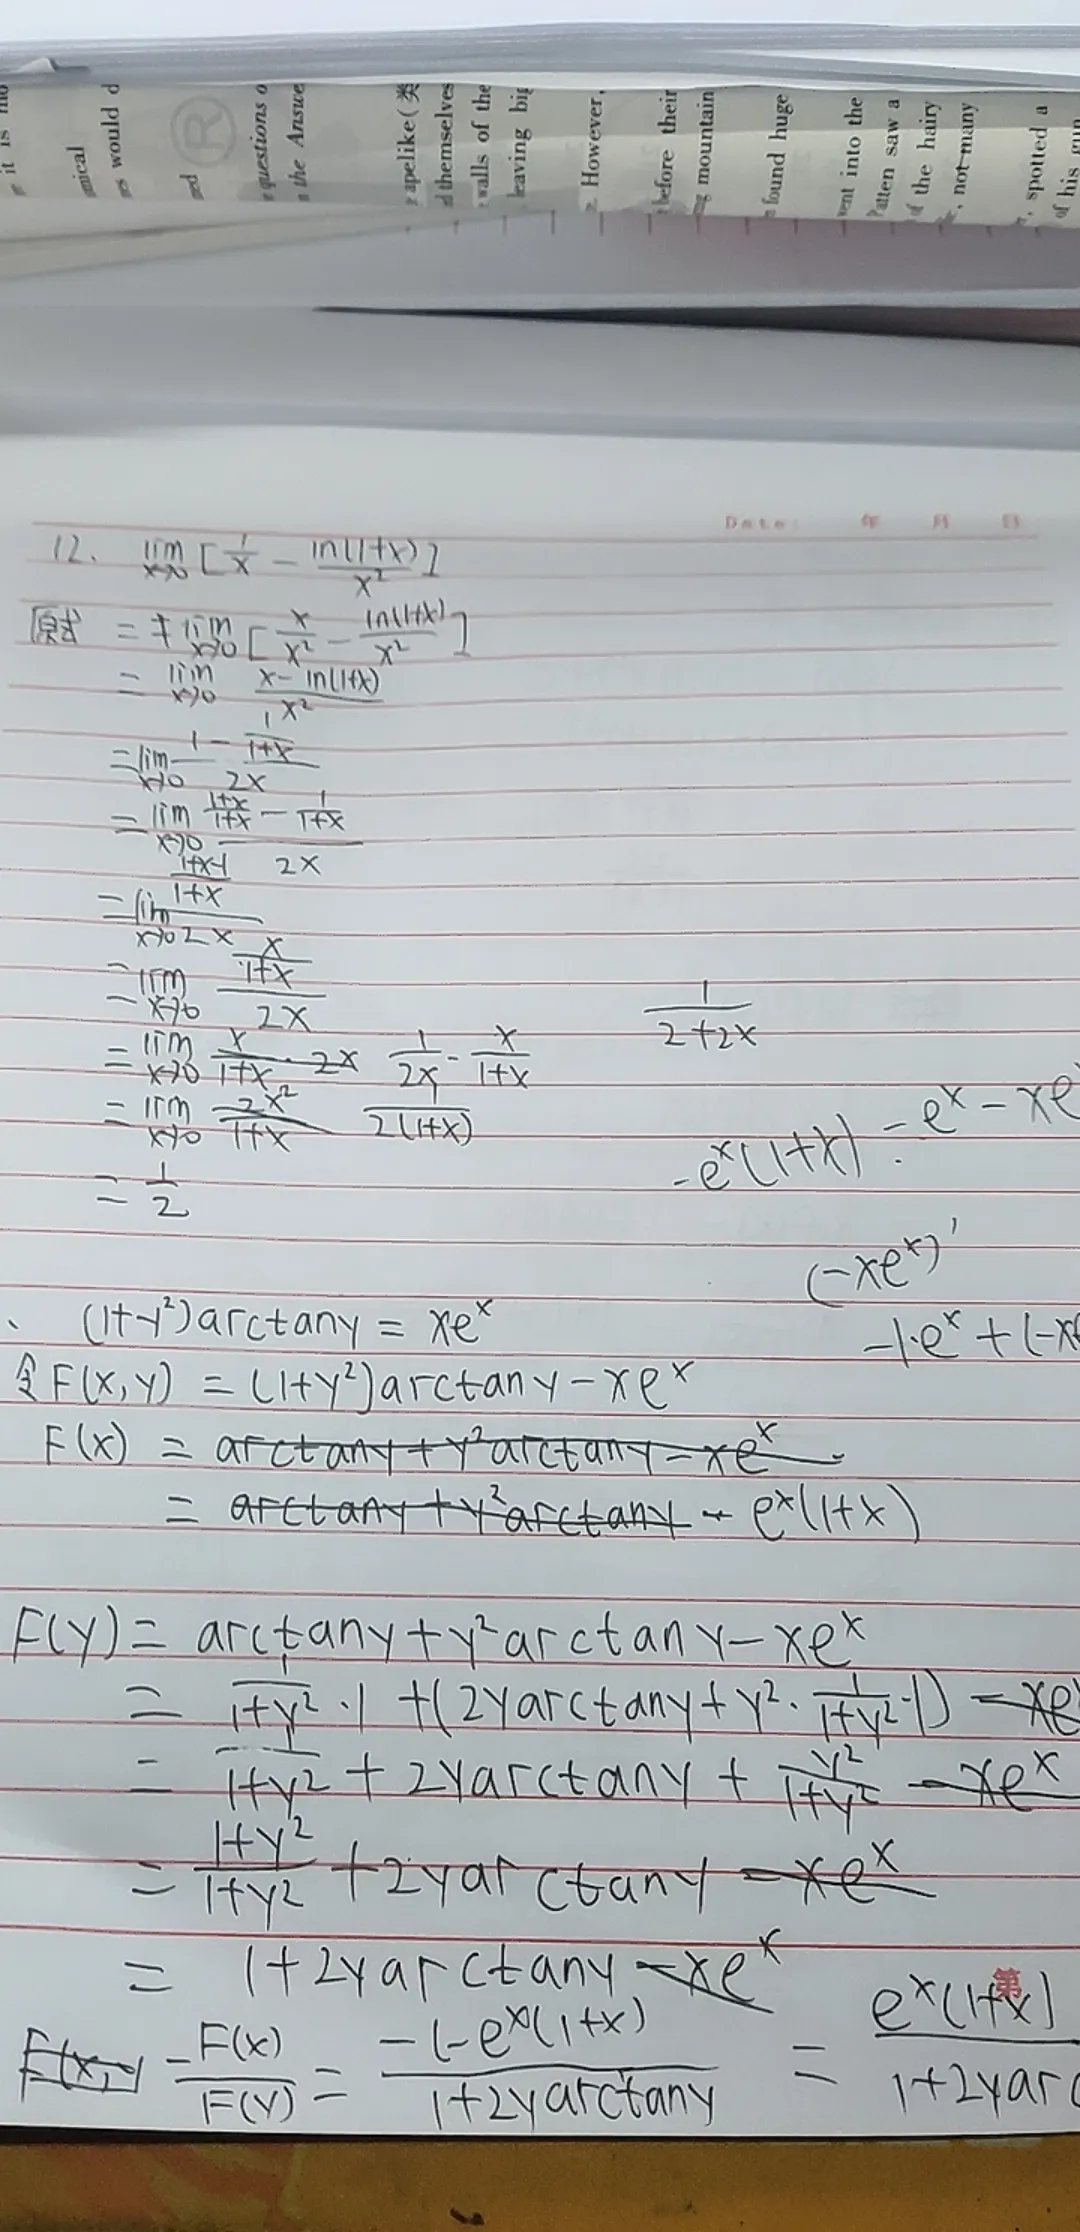 it is
mical
s would d
® 
questions o
the Answe
apelike (类
themselves
walls of the
leaving big
However,
before their
mountain
found huge
vent into the
Patten saw a
of the hairy
, not many
, spotted a
of his gun
Date: 年 月 日
12. lim x→0 [1/x - ln(1+x)/x²]
原式 = lim x→0 [x/x² - ln(1+x)/x²]
= lim x→0 (x-ln(1+x))/x²
= lim x→0 (1 - 1/(1+x))/2x
= lim x→0 ((1+x)/(1+x) - 1/(1+x))/2x
= lim x→0 ((1+x-1)/(1+x))/2x
= lim x→0 (x/(1+x))/2x
1/(2+2x)
= lim x→0 x/(1+x) · 2x 1/2x · x/(1+x)
= lim x→0 2x²/(1+x) 1/(2(1+x))
= 1/2
-e^x(1+x) = -e^x - xe
(-xe^x)'
-1·e^x + (-xe
(1+y²)arctany = xe^x
令F(x,y) = (1+y²)arctany - xe^x
F(x) = arctany + y²arctany - xe^x
= arctany + y²arctany - e^x(1+x)
F(y) = arctany + y²arctany - xe^x
= 1/(1+y²) · 1 + (2yarctany + y² · 1/(1+y²) · 1) - xe
= 1/(1+y²) + 2yarctany + y²/(1+y²) - xe^x
= (1+y²)/(1+y²) + 2yarctany - xe^x
= 1 + 2yarctany - xe^x
第
F(x, -F(x)/F(y) = -(-e^x(1+x)/(1+2yarctany) = e^x(1+x)/(1+2yarc